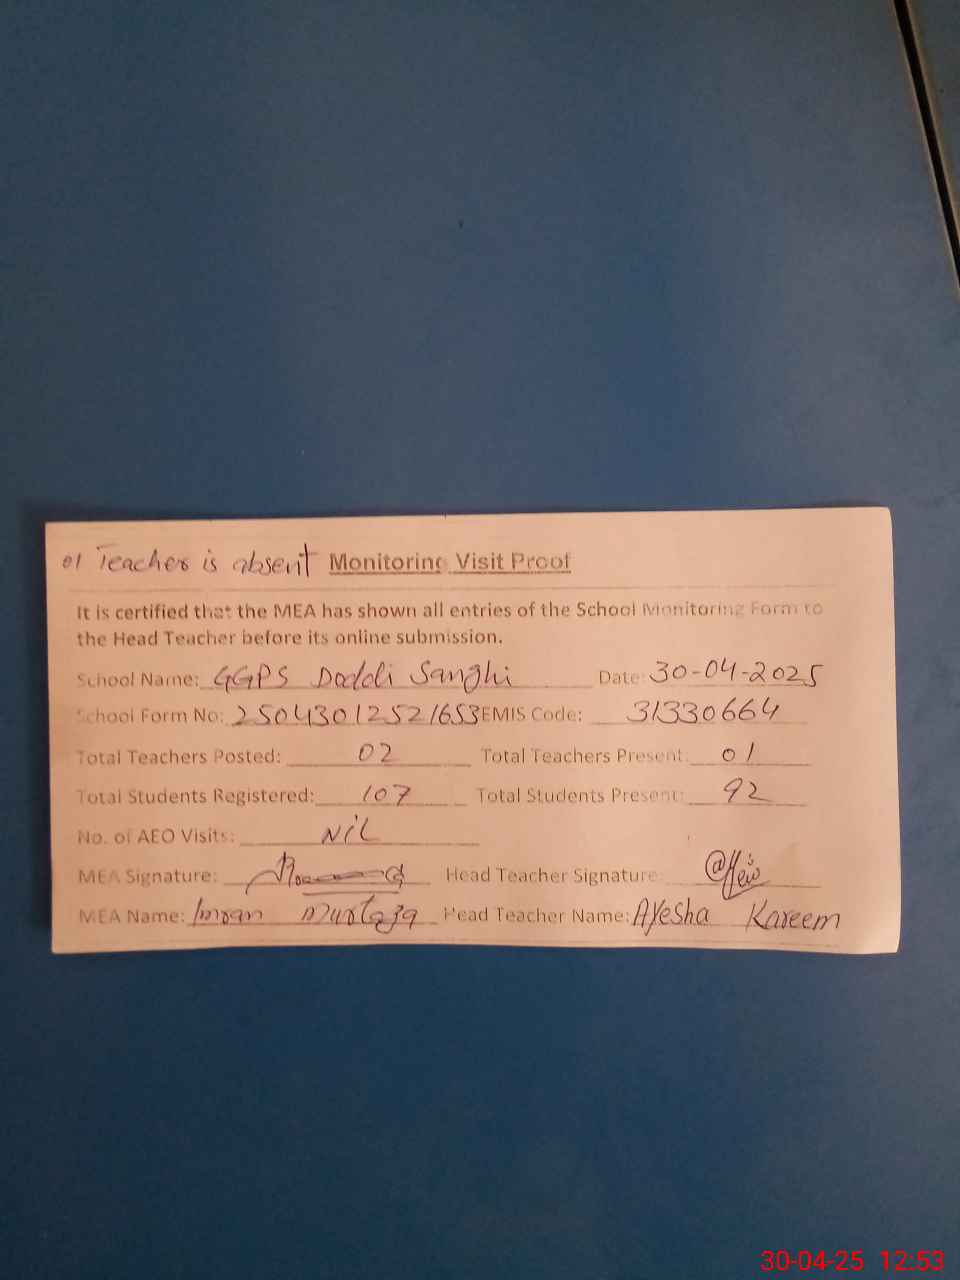 01 Teacher is absent Monitoring Visit Proof
It is certified that the MEA has shown all entries of the School Monitoring Form to
the Head Teacher before its online submission.
School Name: GGPS Doddi Sanghi Date: 30-04-2025
School Form No: 25043012521653 EMIS Code: 31330664
Total Teachers Posted: 02 Total Teachers Present: 01
Total Students Registered: 107 Total Students Present: 92
No. of AEO Visits: NiL
MEA Signature: Head Teacher Signature:
MEA Name: Imran Murtaza Head Teacher Name: Ayesha Kareem
30-04-25 12:53